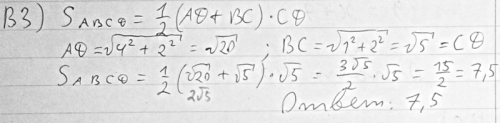 В3) S_ABCD = 1/2 (AD + BC) · CD
AD = √(4² + 2²) = √20 ; BC = √(1² + 2²) = √5 = CD
S_ABCD = 1/2 (√20 + √5) · √5 = 3√5/2 · √5 = 15/2 = 7,5
2√5
Ответ: 7,5